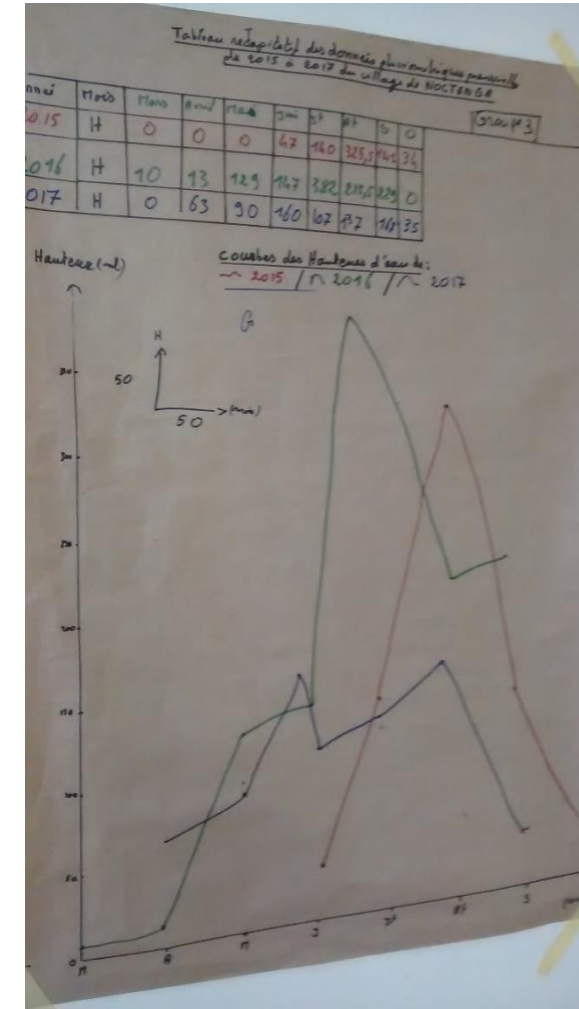 Tableau recapitulatif des données pluviométriques mensuelles
de 2015 à 2017 du village de NOCTENGA
Groupe 3
Mois Mars Avril Mai Juin Jt At S O
2015 H 0 0 0 47 140 325,5 141 34
2016 H 10 13 129 147 382 229 0
2017 H 0 63 90 160 107 137 35
Hauteur
Courbes des Hauteurs d'eau de:
2015 / 2016 / 2017
H
50
50
(mois)
300
250
200
150
100
50
0
M A M J Jt At S